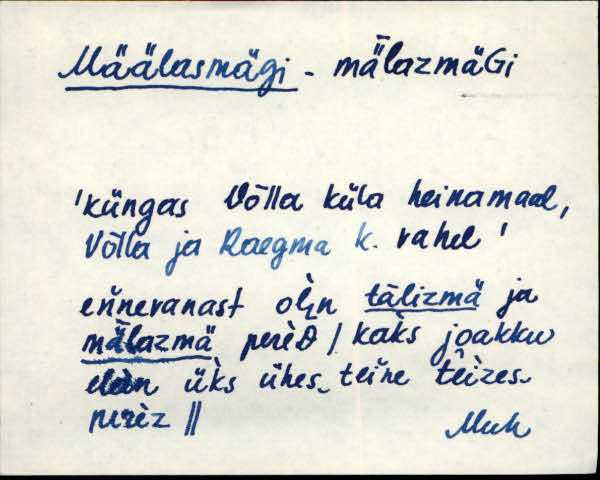 Määlasmägi - mǟlazmäGi
'küngas Võlla küla heinamaal,
Võlla ja Raegma k. vahel'
ennevanast olìn tälizmä ja
mǟlazmä perèD / kaks joakku
elàn üks ühes, teine tȇizes
perèz ||
Muh